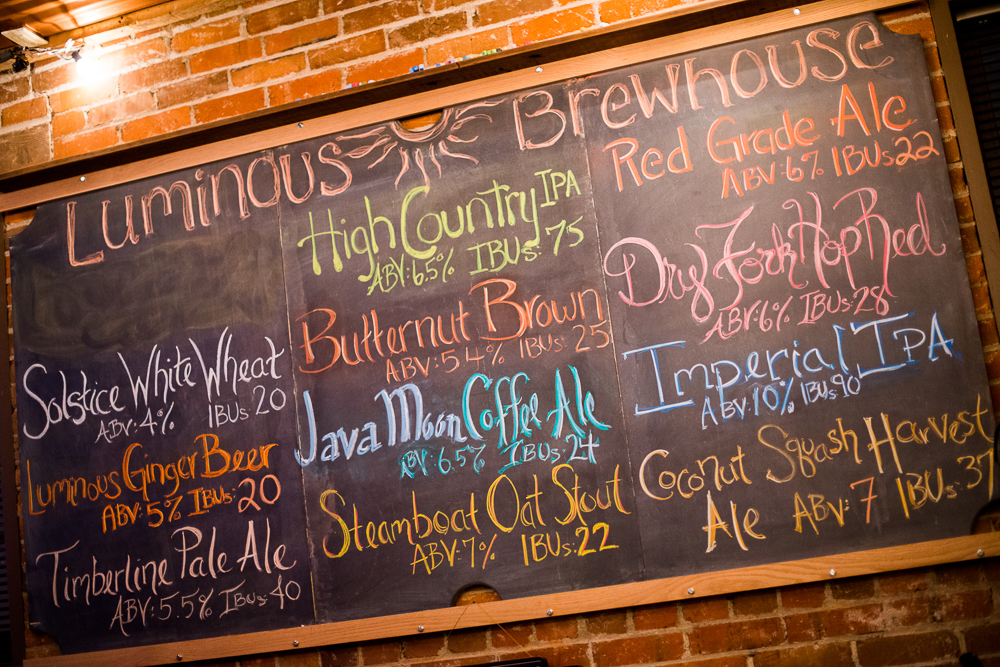 Luminous Brewhouse
Solstice White Wheat
ABV: 4% IBUs: 20
Luminous Ginger Beer
ABV: 5% IBUs: 20
Timberline Pale Ale
ABV: 5.5% IBUs: 40
High Country IPA
ABV: 6.5% IBUs: 75
Butternut Brown
ABV: 5.4% IBUs: 25
Java Moon Coffee Ale
ABV: 6.5% IBUs: 24
Steamboat Oat Stout
ABV: 7% IBUs: 22
Red Grade Ale
ABV: 6.7% IBUs: 22
Dry Fork Hop Red
ABV: 6% IBUs: 28
Imperial IPA
ABV: 10% IBUs: 90
Coconut Squash Harvest
Ale ABV: 7 IBUs: 37